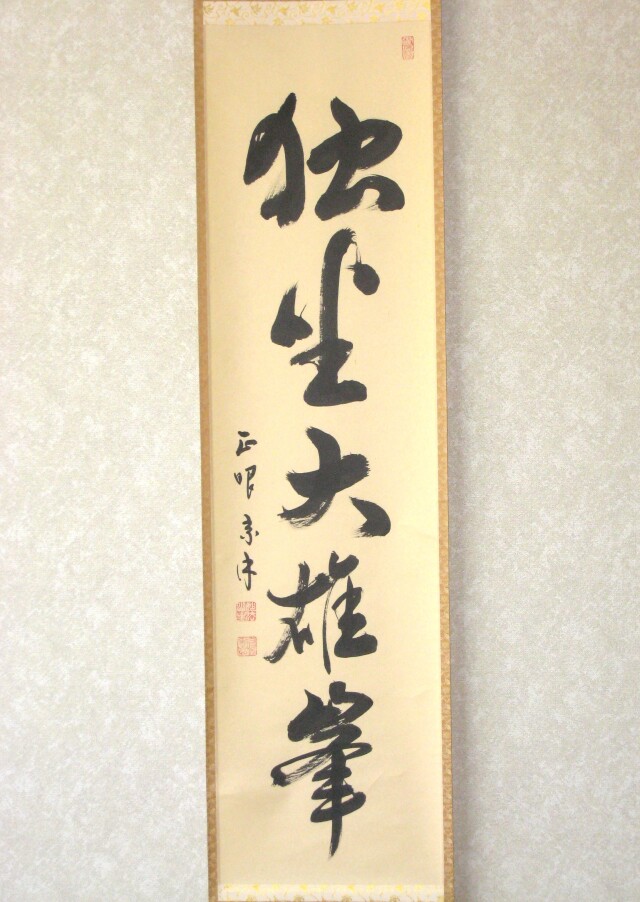 独坐大雄峯
正眼 宗沐